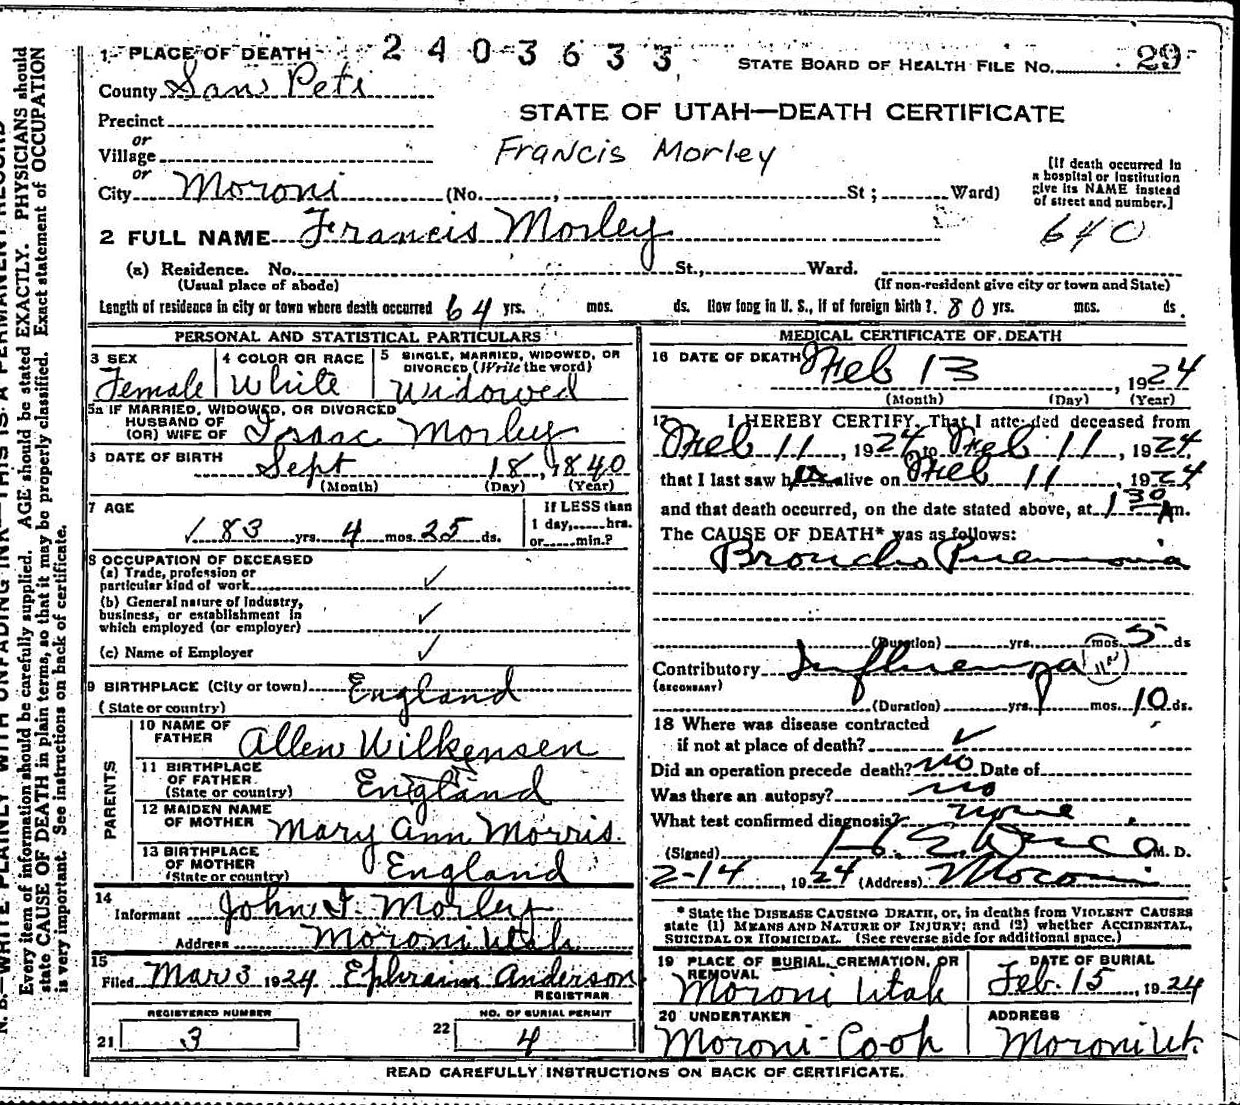 1 PLACE OF DEATH 2403633 STATE BOARD OF HEALTH FILE No. 29
County San Pete
STATE OF UTAH—DEATH CERTIFICATE
Precinct
or
Village
Francis Morley
or
City Moroni (No. , St ; Ward)
[If death occurred in
a hospital or institution
give its NAME instead
of street and number.]
2 FULL NAME Francis Morley
640
(a) Residence. No. St., Ward.
(Usual place of abode) (If non-resident give city or town and State)
Length of residence in city or town where death occurred 64 yrs. mos. ds. How long in U. S., if of foreign birth? 80 yrs. mos. ds.
PERSONAL AND STATISTICAL PARTICULARS
3 SEX 4 COLOR OR RACE 5 SINGLE, MARRIED, WIDOWED, OR
DIVORCED (Write the word)
Female White Widowed
5a IF MARRIED, WIDOWED, OR DIVORCED
HUSBAND OF
(OR) WIFE OF Isaac Morley
6 DATE OF BIRTH Sept 18, 1840
(Month) (Day) (Year)
7 AGE If LESS than
1 day, hrs.
83 yrs. 4 mos. 25 ds. or min.?
8 OCCUPATION OF DECEASED
(a) Trade, profession or
particular kind of work ✓
(b) General nature of industry,
business, or establishment in
which employed (or employer) ✓
(c) Name of Employer ✓
9 BIRTHPLACE (City or town) England
(State or country)
PARENTS
10 NAME OF
FATHER Allen Wilkensen
11 BIRTHPLACE
OF FATHER
(State or country) England
12 MAIDEN NAME
OF MOTHER Mary Ann Morris.
13 BIRTHPLACE
OF MOTHER
(State or country) England
14
Informant John I. Morley
Address Moroni Utah
15
Filed Mar 3 1924 Ephraim Anderson
REGISTRAR
REGISTERED NUMBER NO. OF BURIAL PERMIT
21 3 22 4
MEDICAL CERTIFICATE OF DEATH
16 DATE OF DEATH Feb 13, 1924
(Month) (Day) (Year)
17 I HEREBY CERTIFY, That I attended deceased from
Feb 11, 1924 to Feb 11, 1924
that I last saw her alive on Feb 11, 1924
and that death occurred, on the date stated above, at 1 30 A m.
The CAUSE OF DEATH* was as follows:
Broncho Pneumonia
(Duration) yrs. mos. 5 ds
Contributory Influenza
(SECONDARY)
(Duration) yrs. mos. 10 ds.
18 Where was disease contracted
if not at place of death? ✓
Did an operation precede death? no Date of
Was there an autopsy? no
What test confirmed diagnosis?
(Signed) M. D.
2-14, 1924 (Address) Moroni
* State the DISEASE CAUSING DEATH, or, in deaths from VIOLENT CAUSES
state (1) MEANS AND NATURE OF INJURY; and (2) whether ACCIDENTAL,
SUICIDAL OR HOMICIDAL. (See reverse side for additional space.)
19 PLACE OF BURIAL, CREMATION, OR
REMOVAL
Moroni Utah
DATE OF BURIAL
Feb. 15, 1924
20 UNDERTAKER ADDRESS
Moroni Co-op Moroni Ut.
READ CAREFULLY INSTRUCTIONS ON BACK OF CERTIFICATE.
N. B.—WRITE PLAINLY WITH UNFADING INK—THIS IS A PERMANENT RECORD
Every item of information should be carefully supplied. AGE should be stated EXACTLY. PHYSICIANS should
state CAUSE OF DEATH in plain terms, so that it may be properly classified. Exact statement of OCCUPATION
is very important. See instructions on back of certificate.